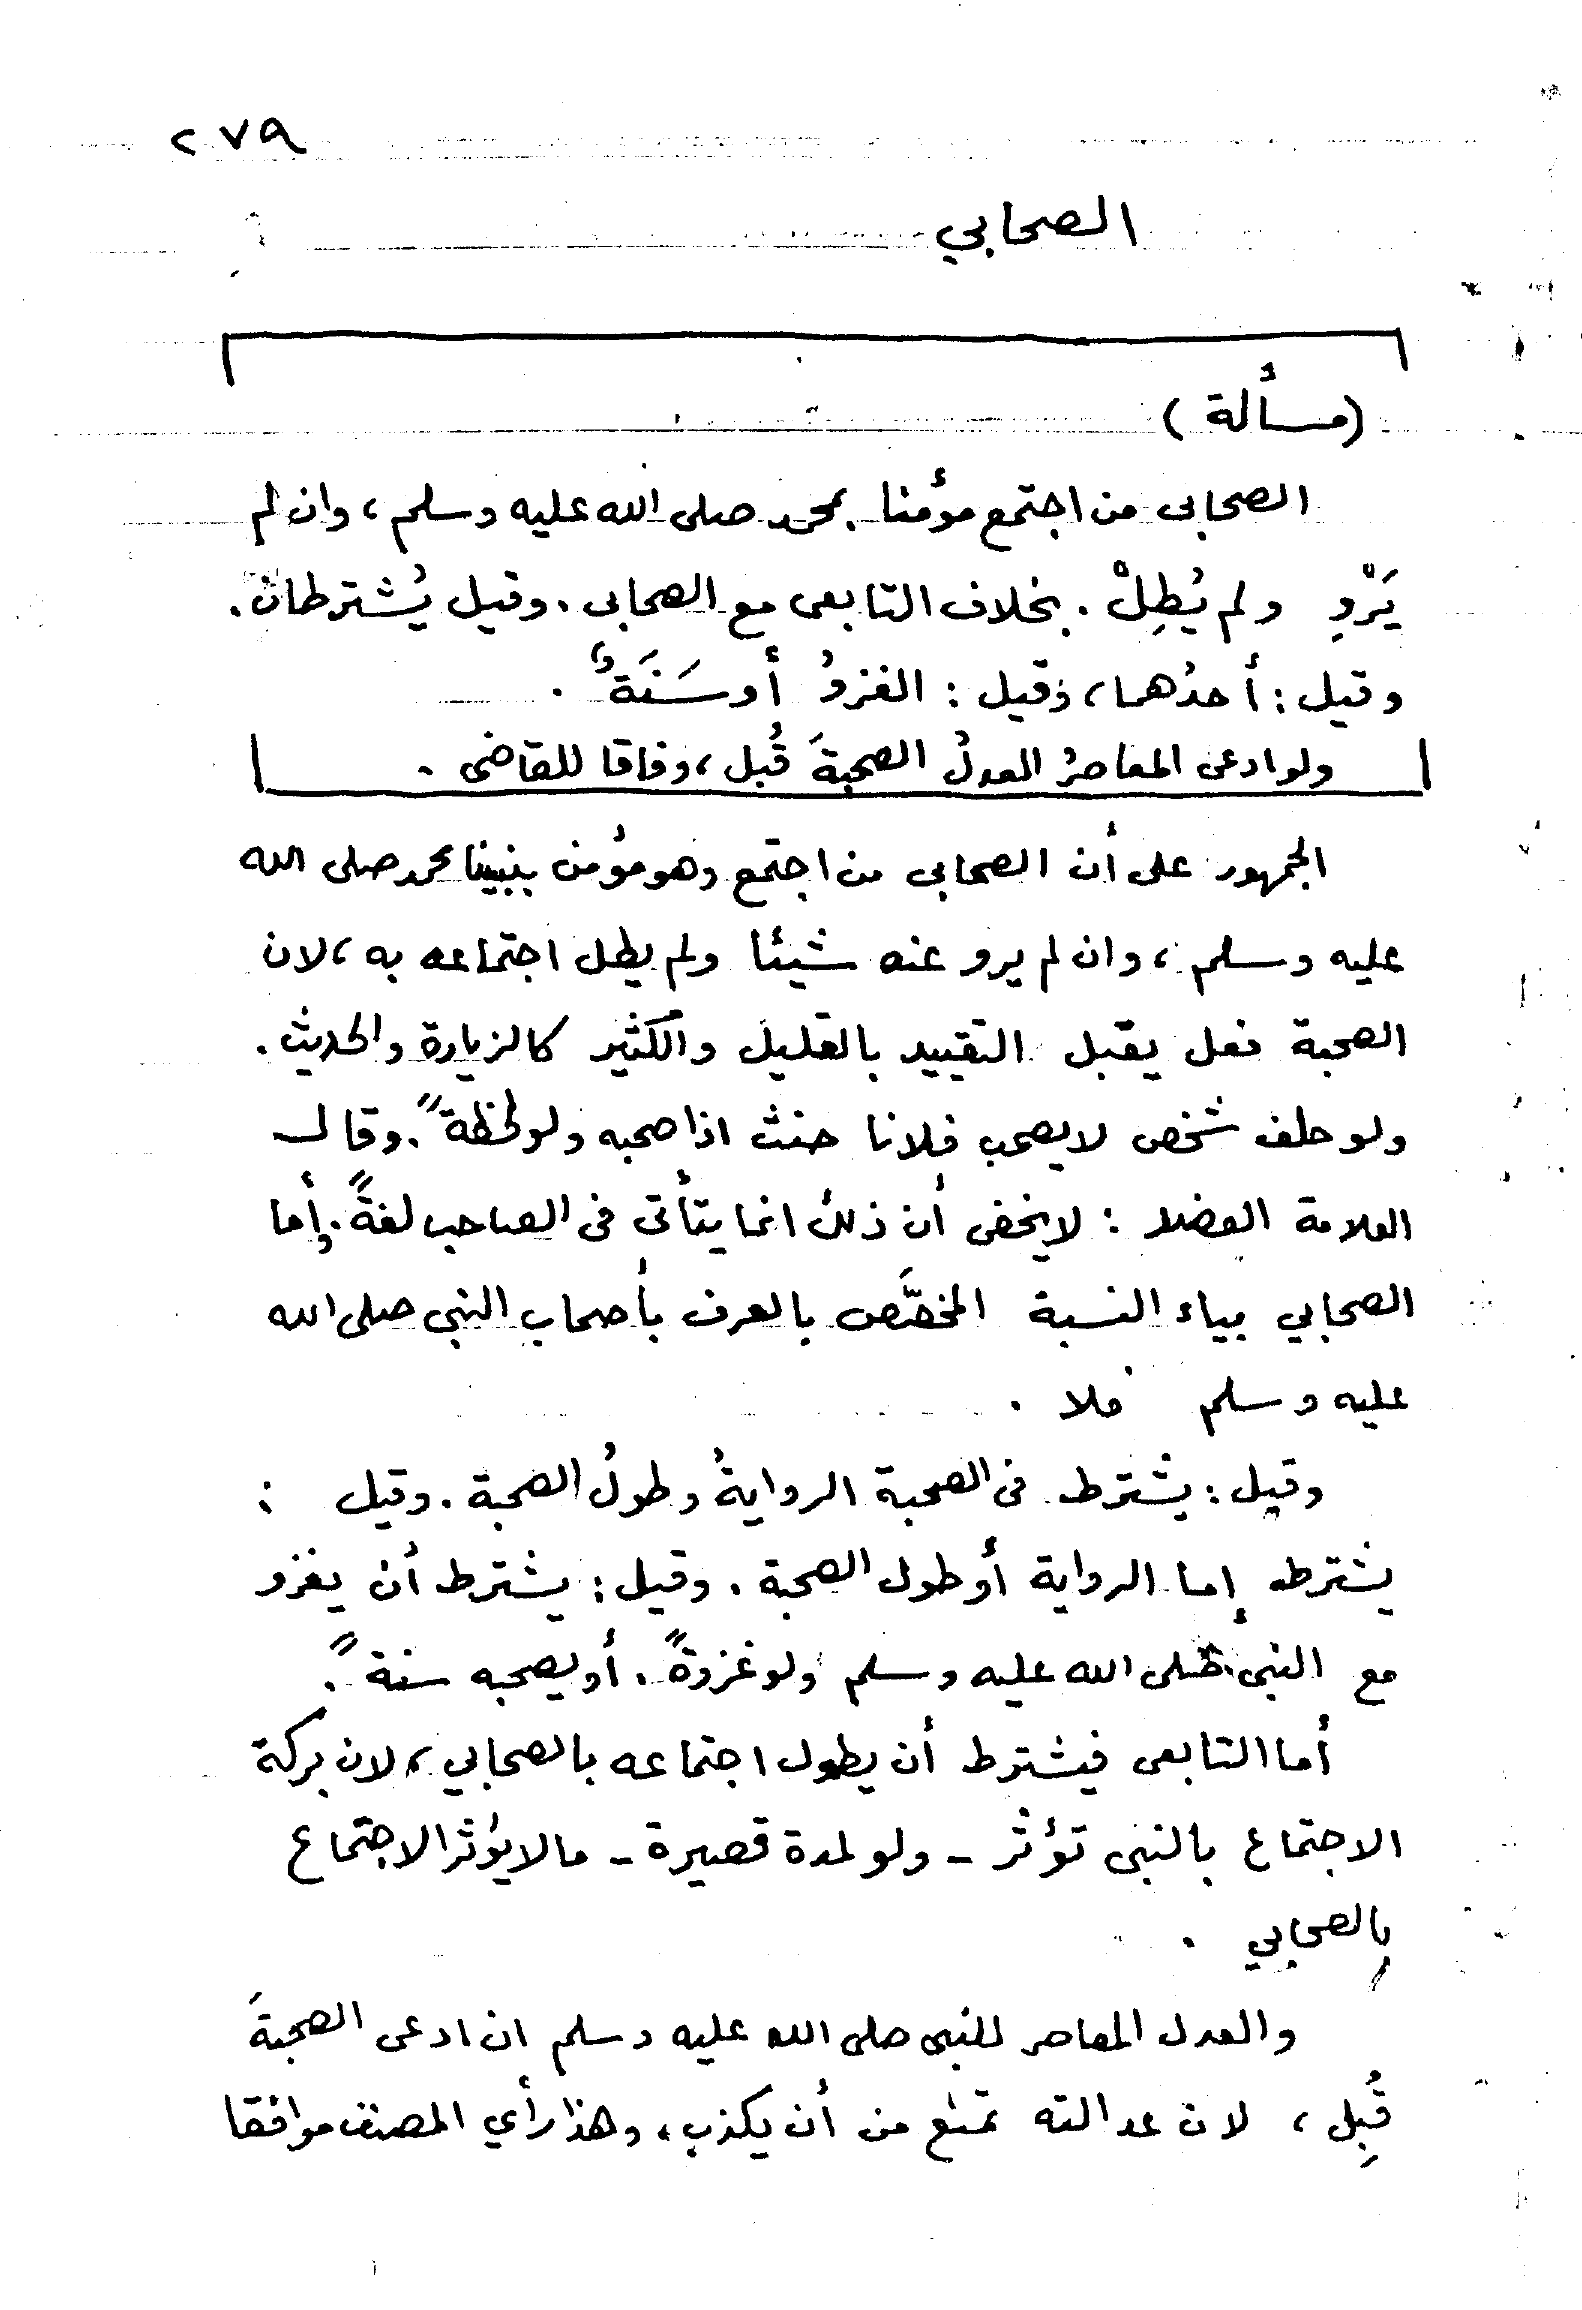 ٢٧٩
الصحابي
(مسألة)
الصحابى من اجتمع مؤمنا بمحمد صلى الله عليه وسلم، وان لم
يَرْوِ ولم يُطِلْ. بخلاف التابعى مع الصحابى. وقيل يُشترطان.
وقيل: أحدُهما، وقيل: الغزوُ أو سَنَةٌ.
ولو ادعى المعاصرُ العدلُ الصحبةَ قُبل، وفاقا للقاضى.
الجمهور على أن الصحابى من اجتمع وهو مؤمن بنبينا محمد صلى الله
عليه وسلم، وان لم يرو عنه شيئا ولم يطل اجتماعه به، لان
الصحبة فعل يقبل التقييد بالقليل والكثير كالزيارة والحديث.
ولو حلف شخص لا يصحب فلانا حنث اذا صحبه ولو لحظةً. وقال
العلامة العضد: لا يخفى أن ذلك انما يتأتى فى الصاحب لغةً. وأما
الصحابي بياء النسبة المختَّص بالعرف بأصحاب النبى صلى الله
عليه وسلم فلا.
وقيل: يشترط فى الصحبة الروايةُ وطولُ الصحبة. وقيل:
يشترط إما الرواية أو طول الصحبة. وقيل: يشترط أن يغزو
مع النبى صلى الله عليه وسلم ولو غزوةً. أو يصحبه سنةً.
أما التابعى فيشترط أن يطول اجتماعه بالصحابي، لان بركة
الاجتماع بالنبى تؤثر - ولو لمدة قصيرة - مالا يؤثر الاجتماع
بالصحابي.
والعدل المعاصر للنبى صلى الله عليه وسلم ان ادعى الصحبةَ
قُبِل، لان عدالته تمنع من أن يكذب، وهذا رأي المصنف موافقا